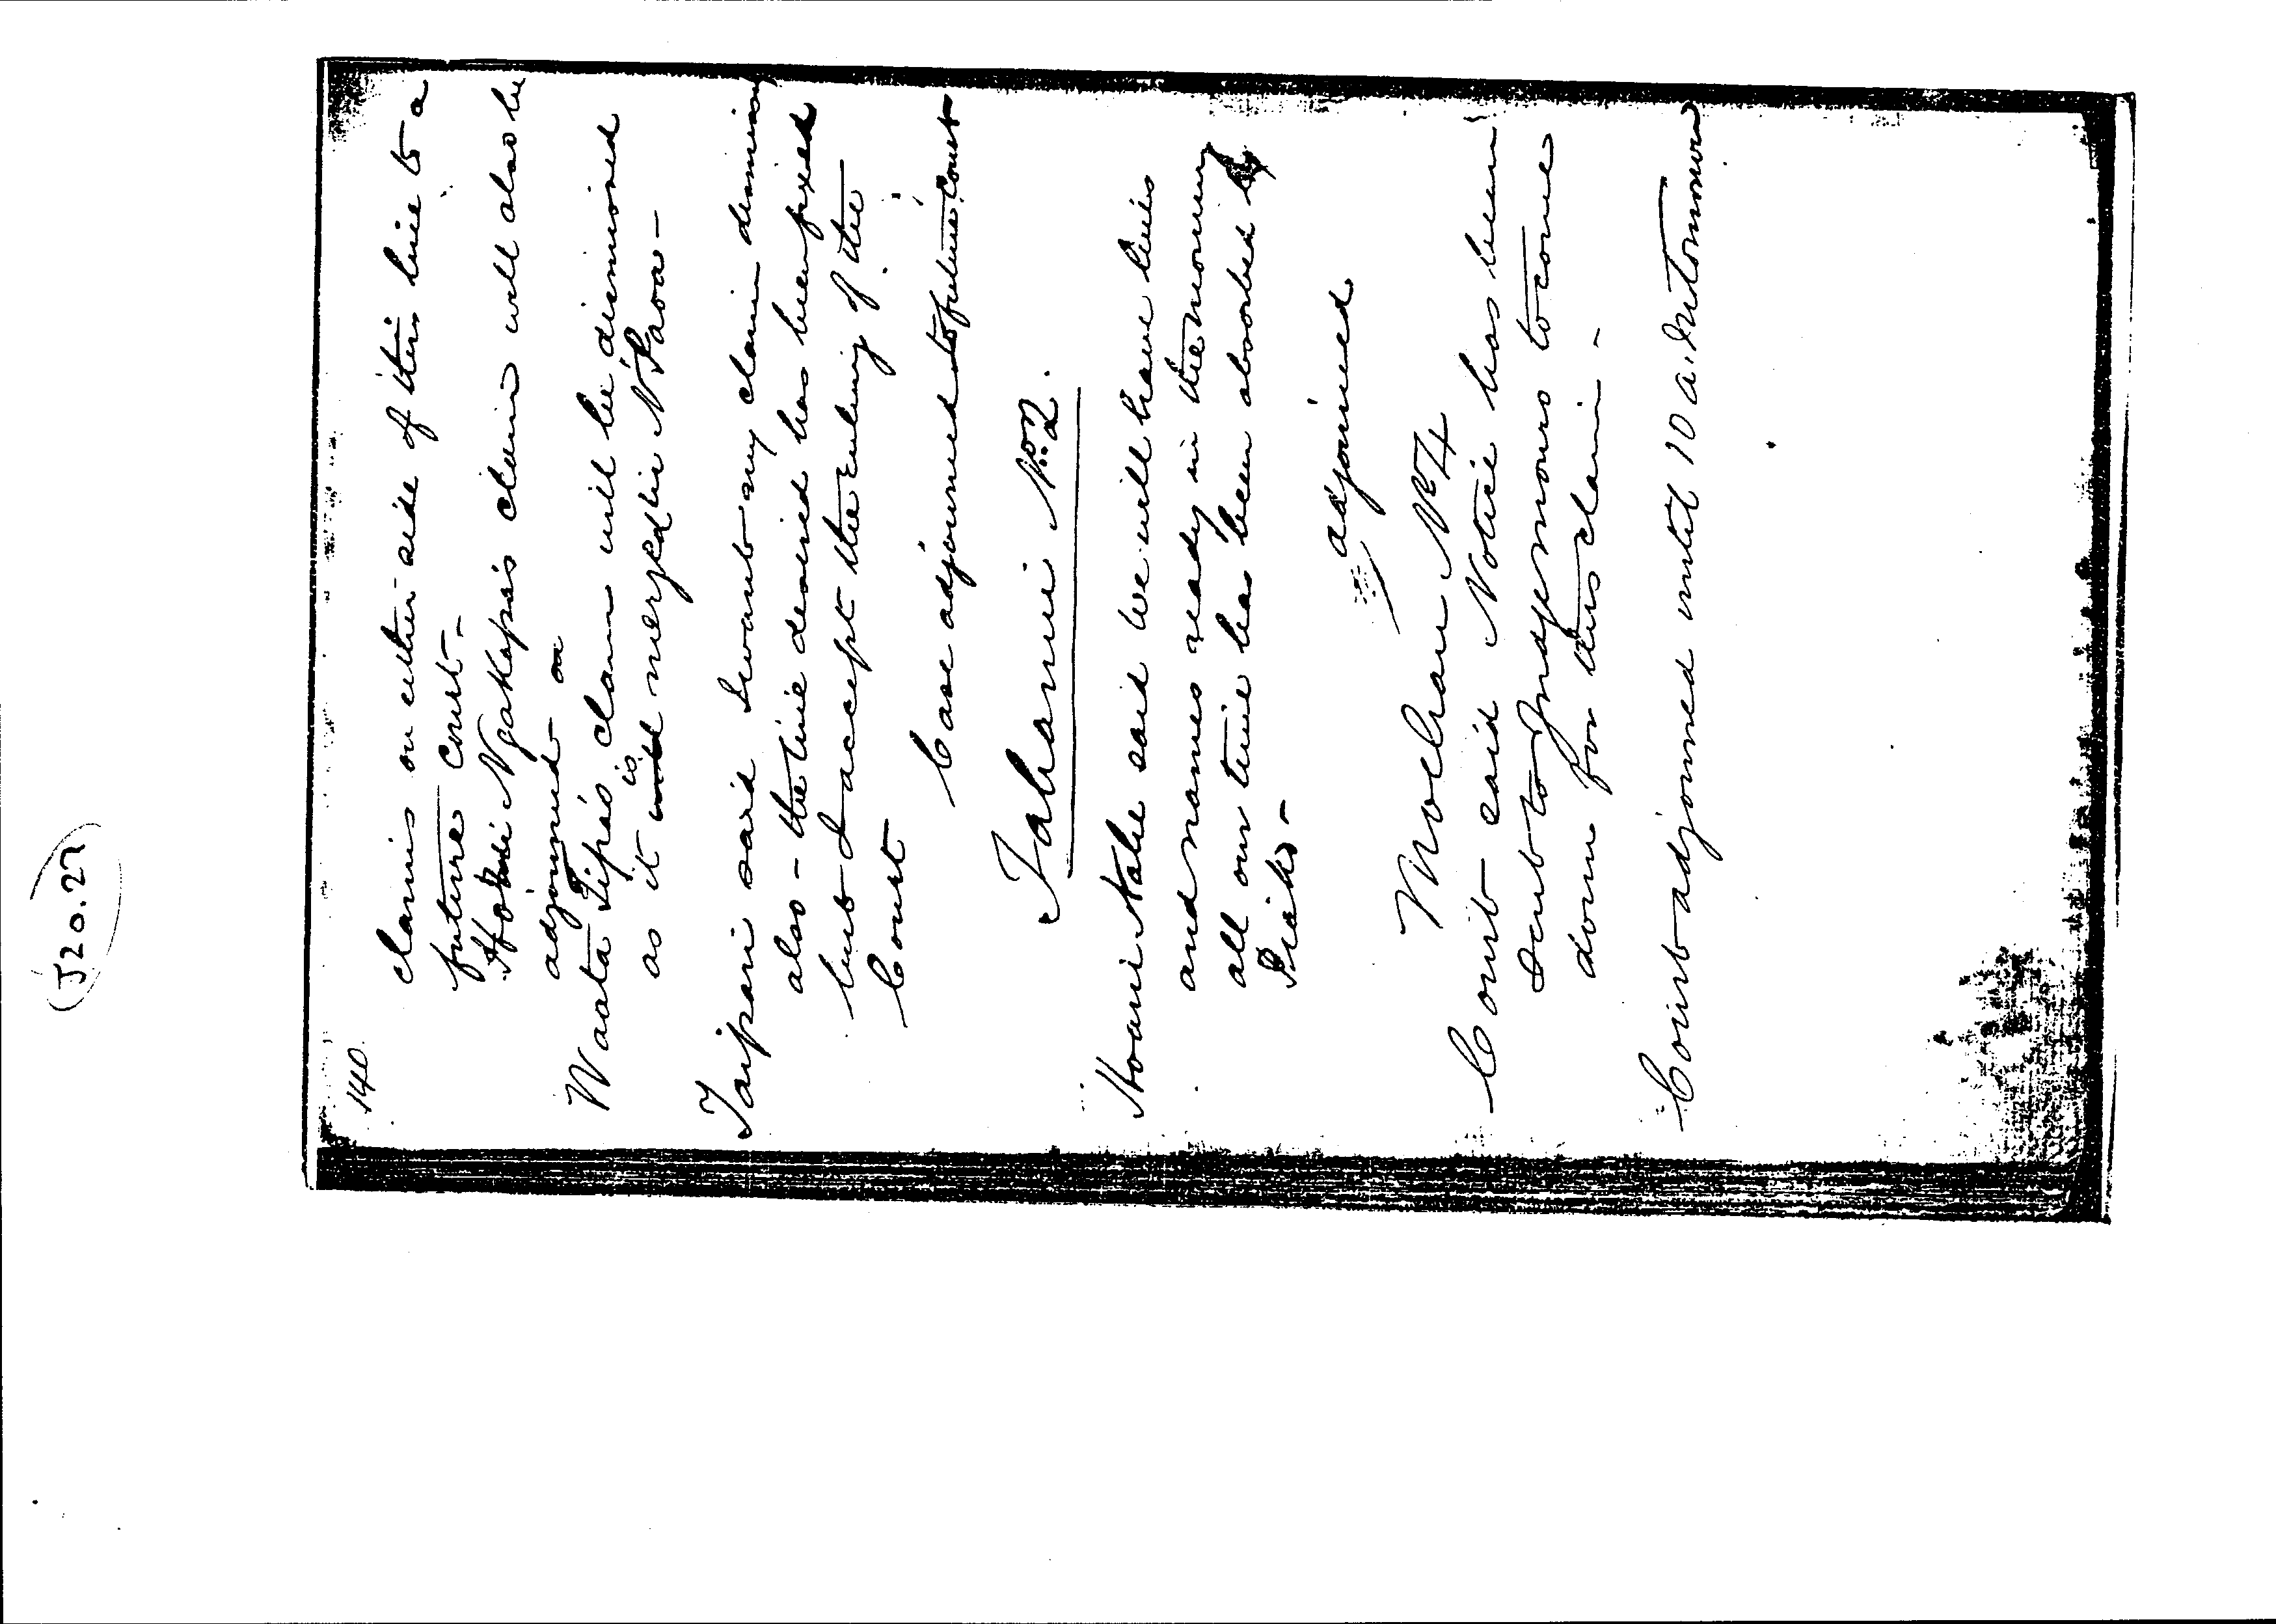 J20.27
140.
claims on either side of this line to a
future Court -
Ngakapa's claim will also be
adjourned
Waata Tipa's claim will be dismissed
as it is merged in N Paoa -
Taipari said I want my claim dismissed
also - the line desired has been fixed
but I accept the ruling of the
Court
Case adjourned to future Court
Taharui No. 2.
Hoani Nahe said we will have lines
and names ready in the morning
all our time has been absorbed by
Piako -
adjourned
Moehau No 4
Court said Notice has been
sent to Ingag mours to come
down for this claim -
Court adjourned until 10 a.m. tomorrow